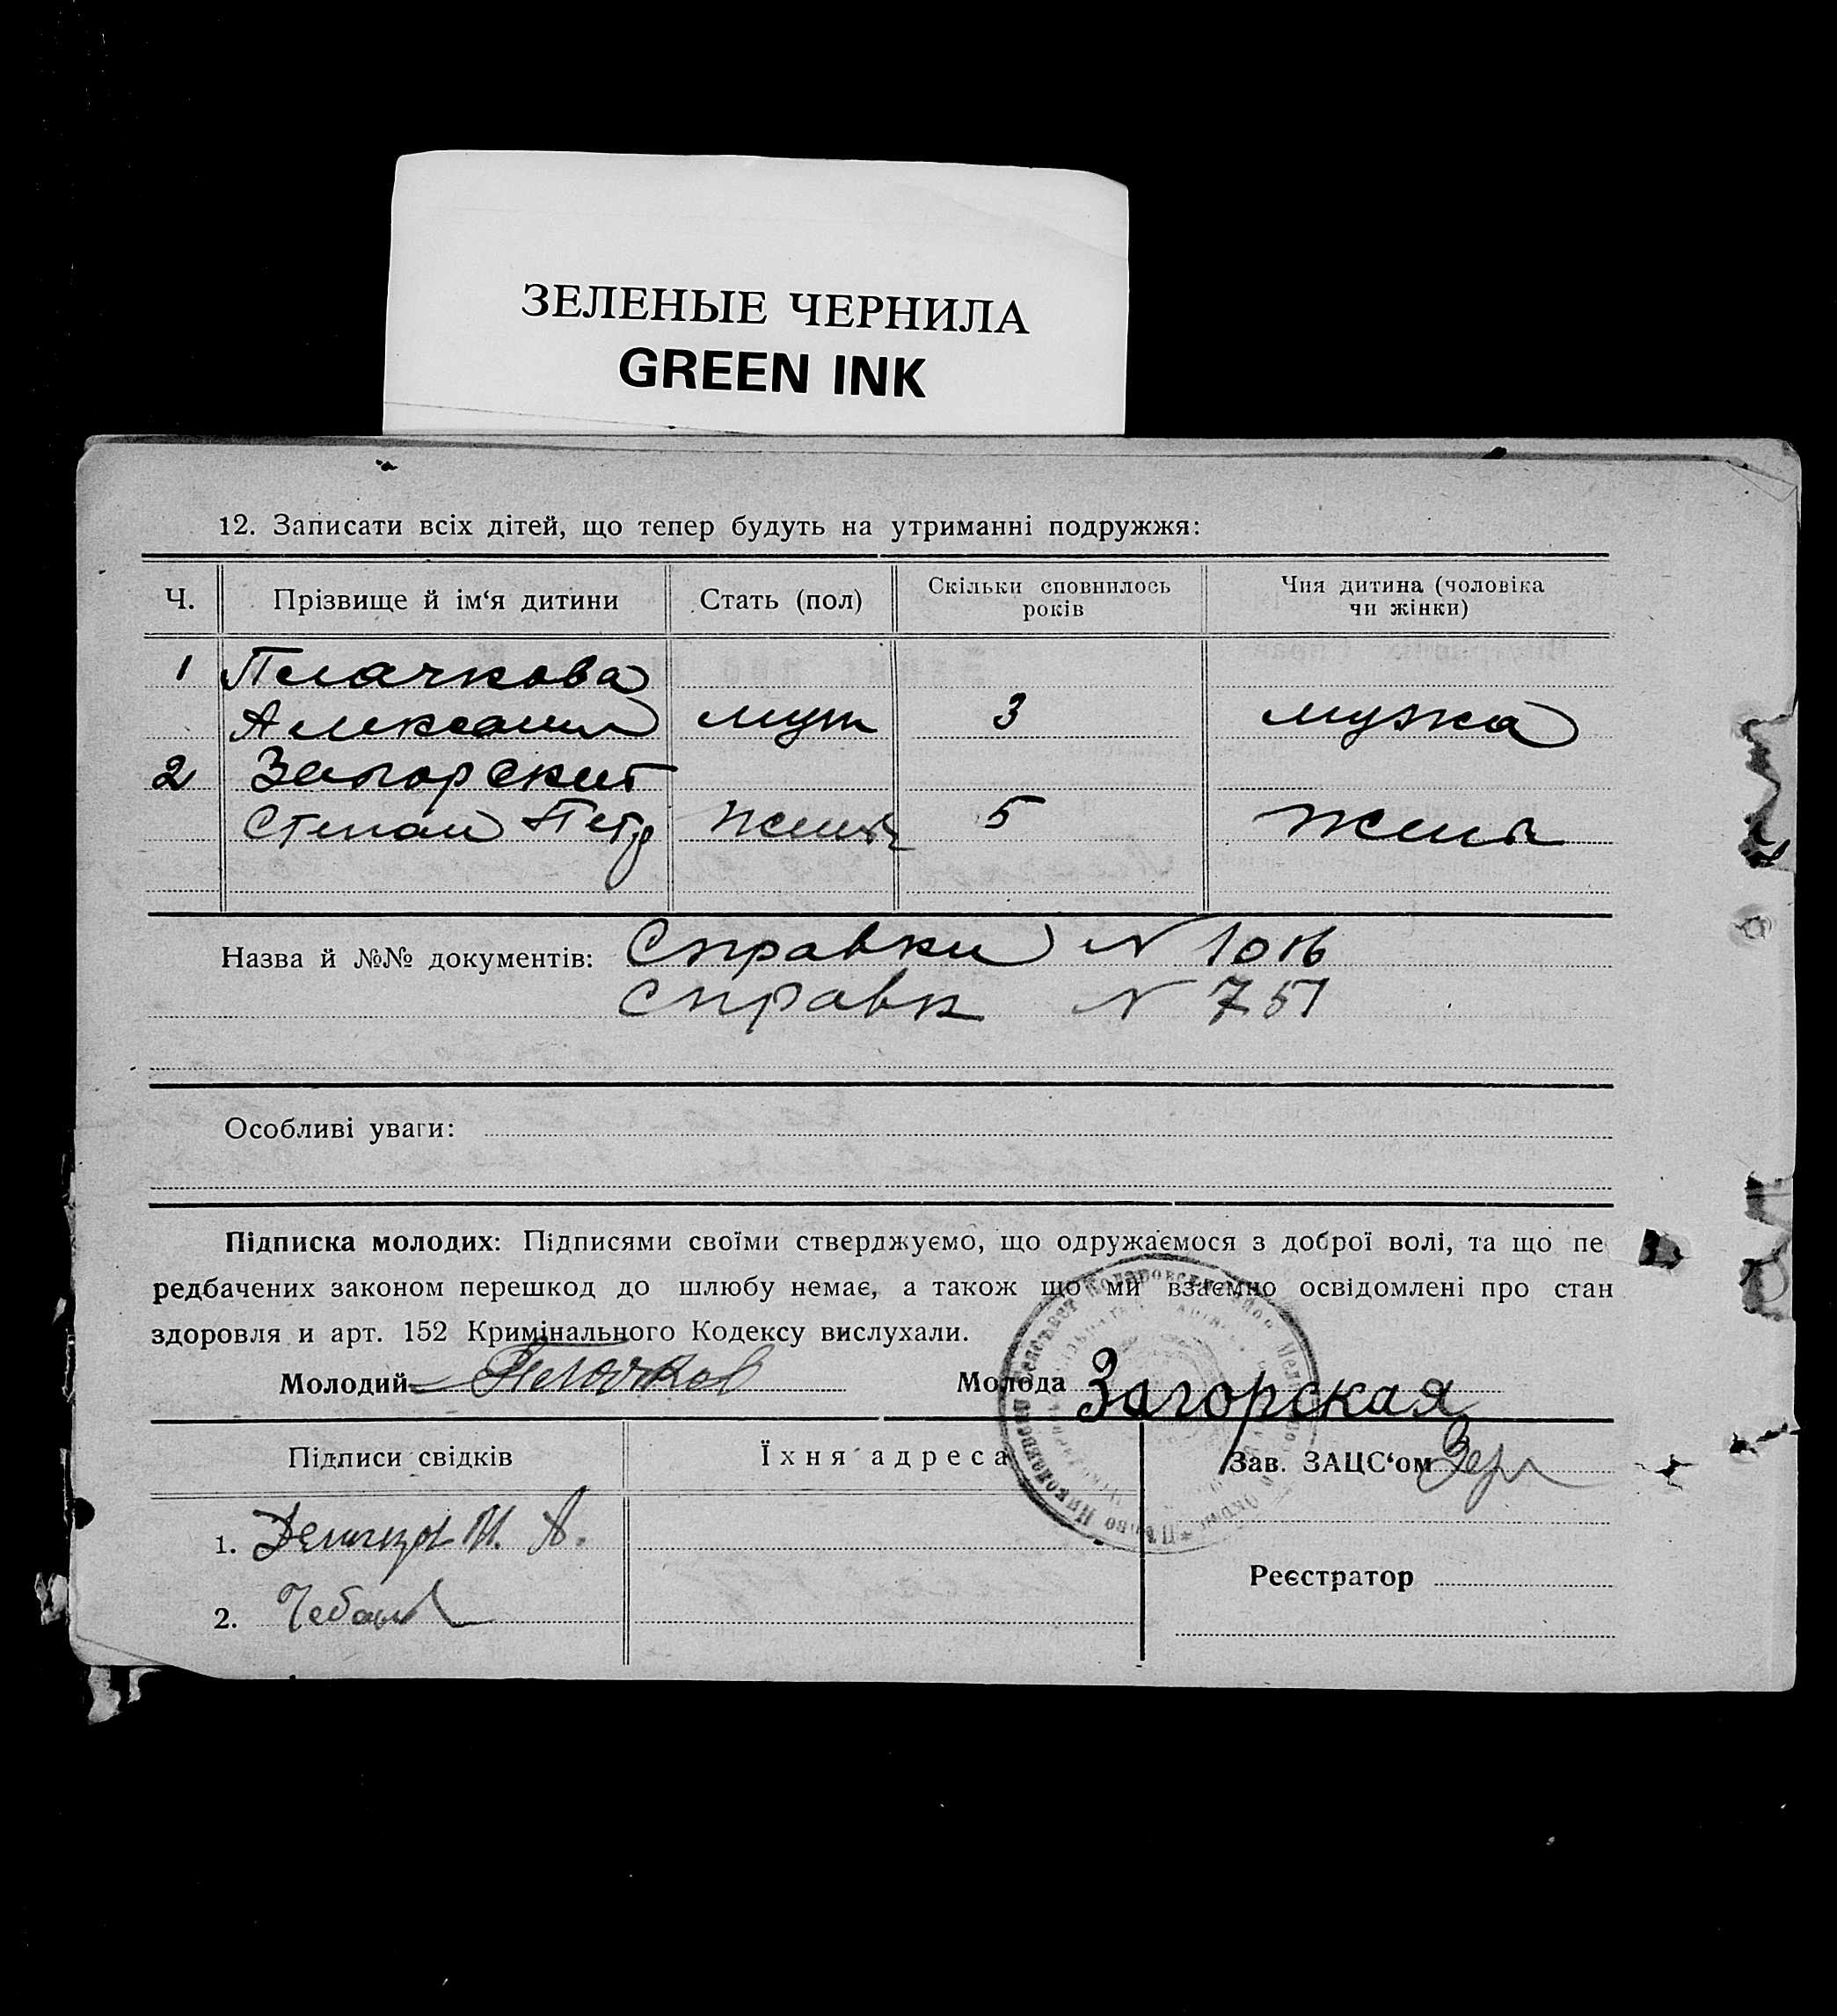 ЗЕЛЕНЫЕ ЧЕРНИЛА
GREEN INK
12. Записати всіх дітей, що тепер будуть на утриманні подружжя:
Ч. Прізвище й ім‘я дитини Стать (пол) Скільки сповнилось років Чия дитина (чоловіка чи жінки)
1 Пелачкова
муж 3 мужа
2 Загорский
Степан Петр 5 жены
Назва й №№ документів: Справки N 1016
Справк N 751
Особливі уваги:
Підписка молодих: Підписями своїми стверджуємо, що одружаємося з доброї волі, та що пе
редбачених законом перешкод до шлюбу немає, а також що ми взаємно освідомлені про стан
здоровля и арт. 152 Кримінального Кодексу вислухали.
Молодий Пелачков Молода Загорская
Підписи свідків Їхня адреса Зав. ЗАЦС‘ом
1.
Реєстратор
2.